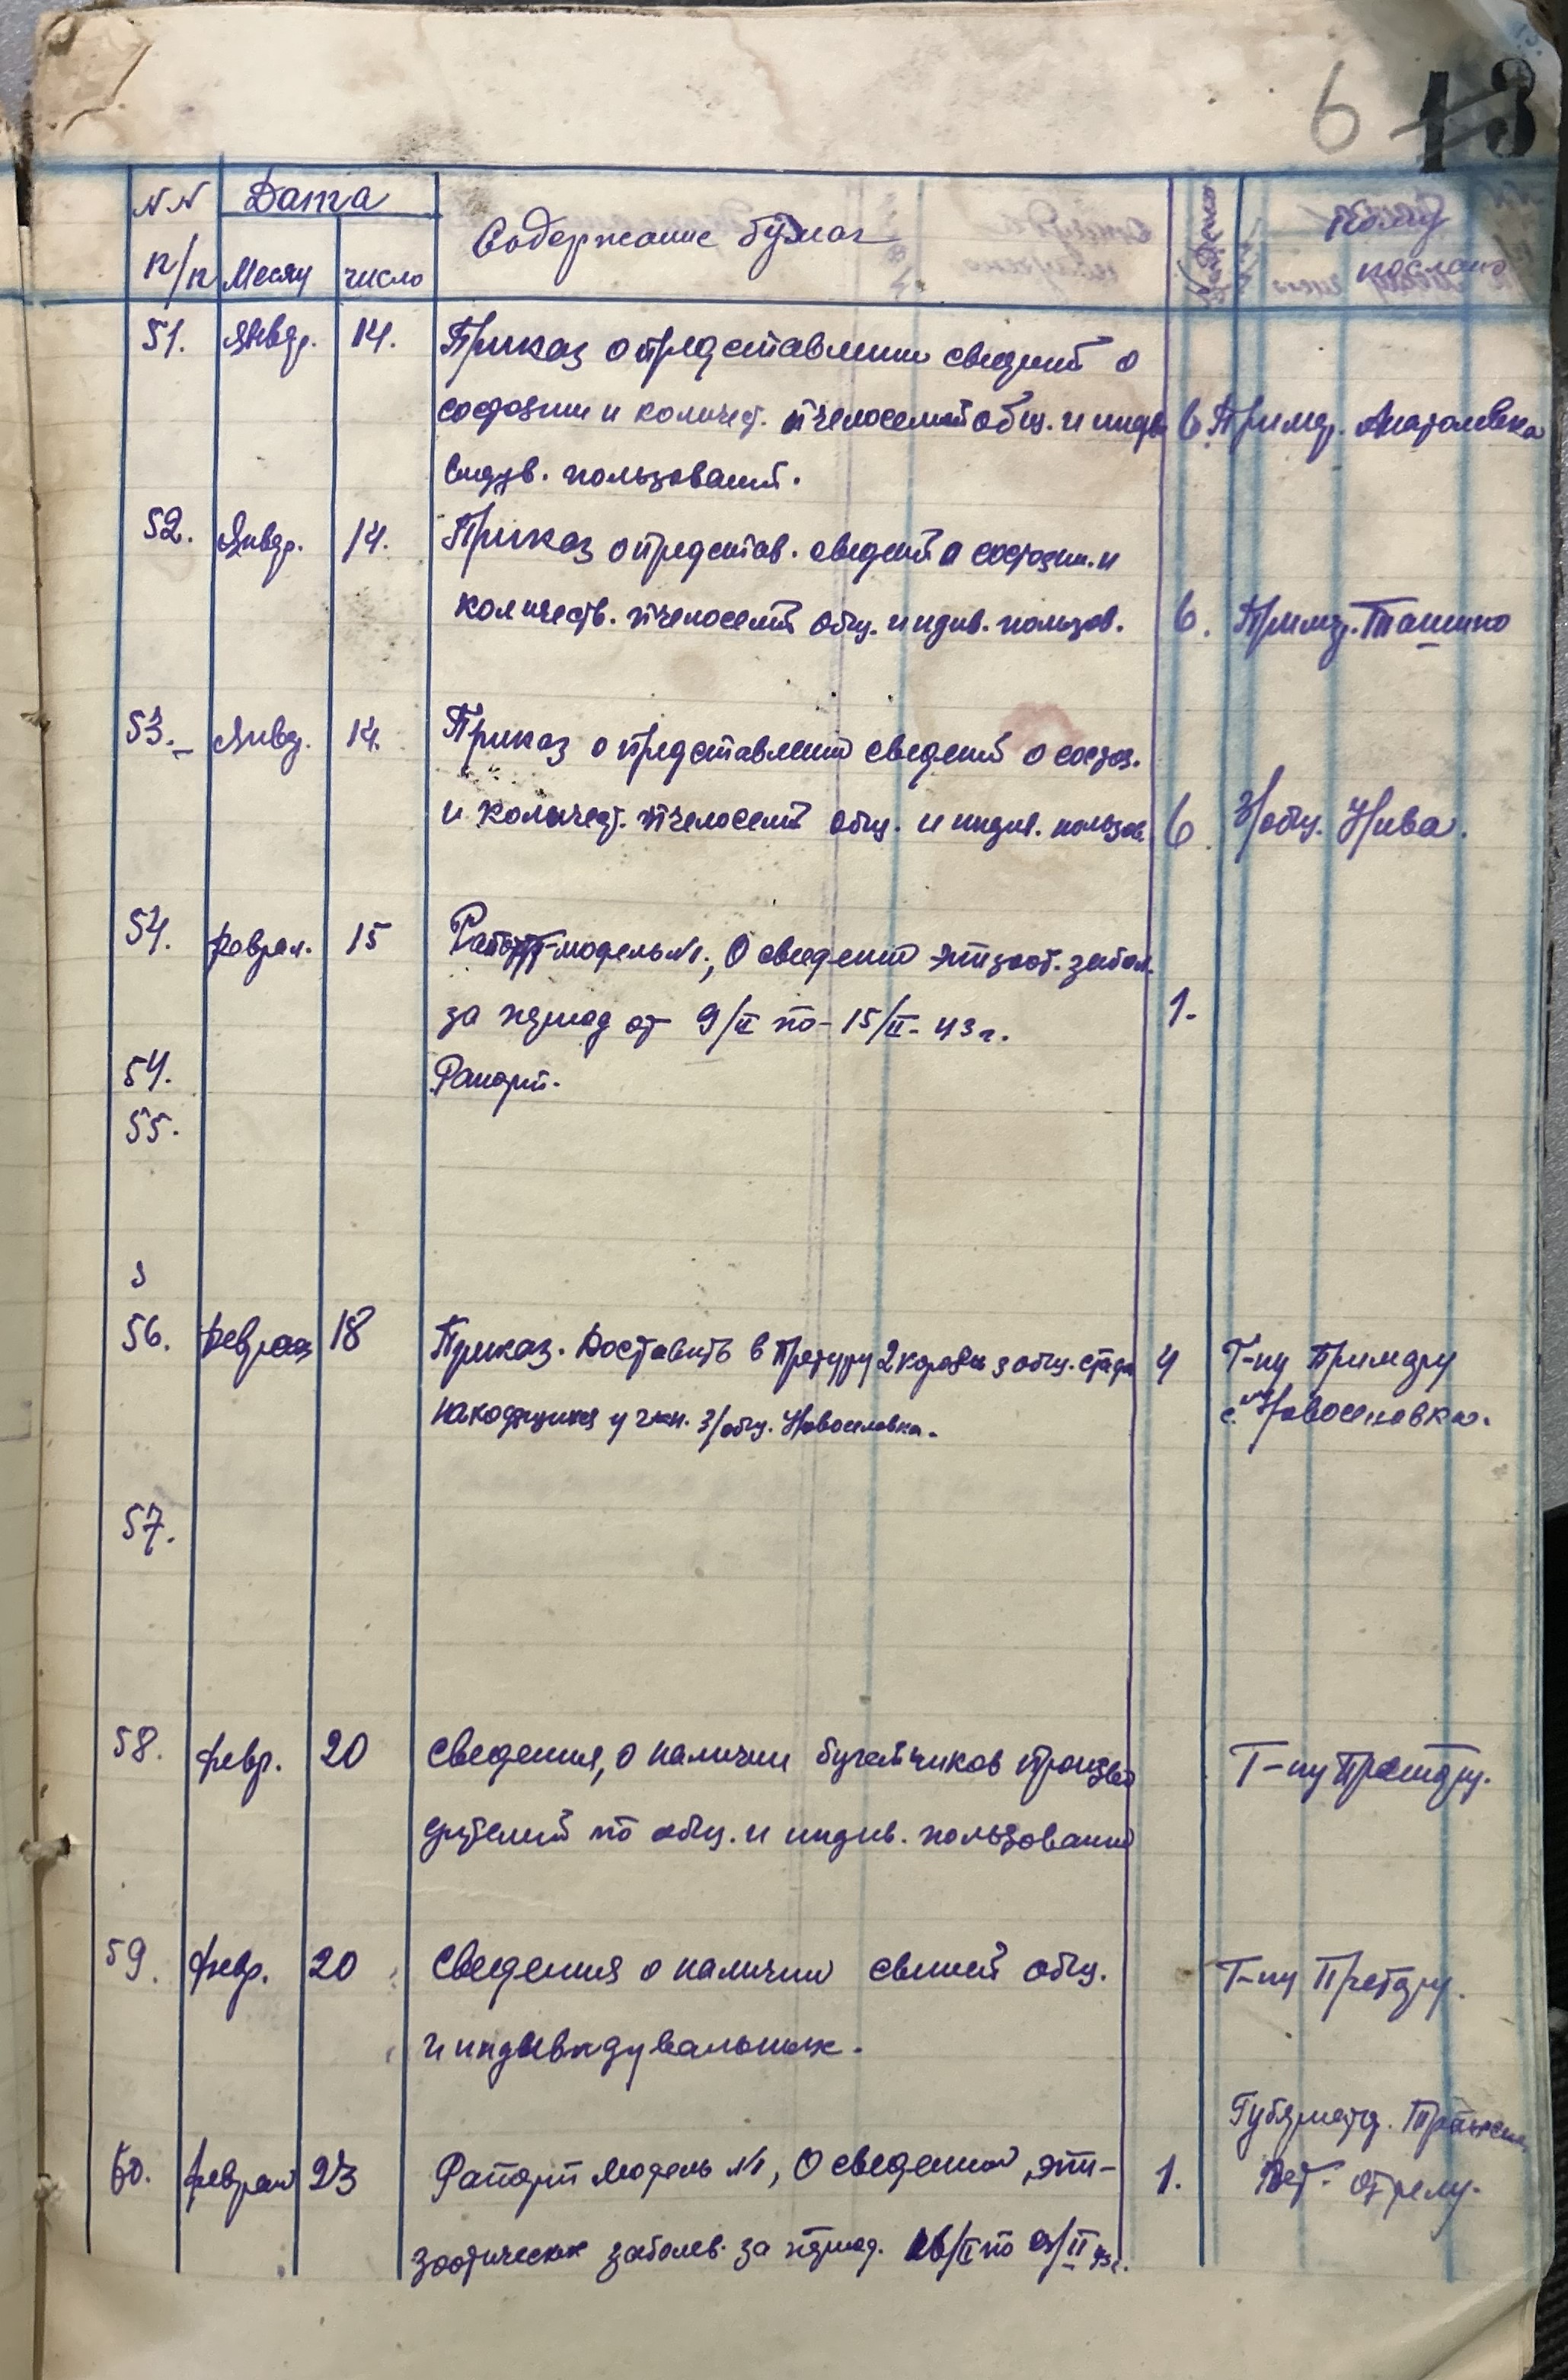 6 13
NN Дата Содержание бумаг №Дела Кому
п/п Месяц число послано
51. Январ. 14. Приказ о представлении сведений о
состоянии и количест. пчелосемей общ. и индив 6 Примар. Анатолевка
индив. пользований.
52. Январ. 14. Приказ о представ. сведений о состоянии. и
количеств. пчелосемей общ. и индив. пользов. 6. Примар. Ташино
53. Январ. 14. Приказ о представлении сведений о состоя.
и количест. пчелосемей общ. и индив. пользов. 6 З/общ. Нива.
54. феврал. 15 Рапорт-модель №1., О сведении эпизоот. забол.
за период от 9/II по - 15/II - 43 г. 1.
54. Рапорт.
55.
56. февраля 18 Приказ. Доставить в Претуру 2 коровы з общ. стада 4 Г-ну Примару
находящихся у З/общ. Новоселовка. с. Новоселовка.
57.
58. февр. 20 Сведения, о наличии бугайчиков произво Г-ну Претору.
дителей по общ. и индив. пользовании
59. февр. 20 Сведения о наличии свиней общ. Г-ну Претору.
и индывидувальных.
Губернатор.
60. феврал 23 Рапорт Модель №1, О сведении эпи- 1. Вет. отделу.
зоотических заболев. за период. 16/II по 23/II 43 г.